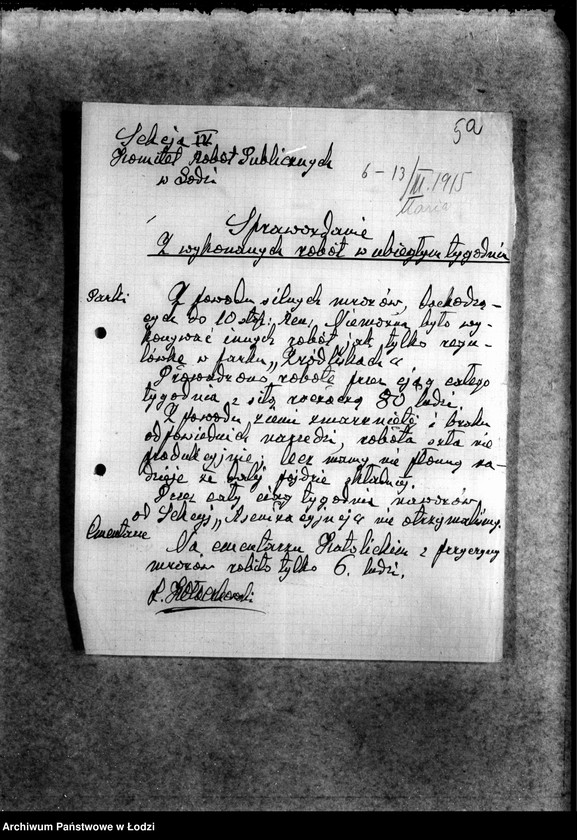 5a
Sekcja IV
Komitet Robót Publicznych
w Łodzi
6 – 13/III. 1915
Marie
Sprawozdanie
Z wykonanych robót w ubiegłym tygodniu
Parki
Z powodu silnych mrozów, dochodzą-
cych do 10 stp. Reu. Niemożna było wy-
konywać innych robót jak tylko regu-
lówkę w parku „Źródliskach"
Prowadzono robotę przez ciąg całego
tygodnia z siłą roboczą 80 ludzi.
Z powodu ziemi zmarzniętej i braku
odpowiednich narzędzi, robota szła nie
produkcyjnie; lecz mamy nie płonną na-
dzieję że dalej pójdzie składniej.
Przez cały ciąg tygodnia nawozów
od Sekcyi „Asenizacyjnej" nie otrzymaliśmy.
Cmentarze
Na cmentarzu Katolickim z przyczyny
mrozów robiło tylko 6. ludzi.